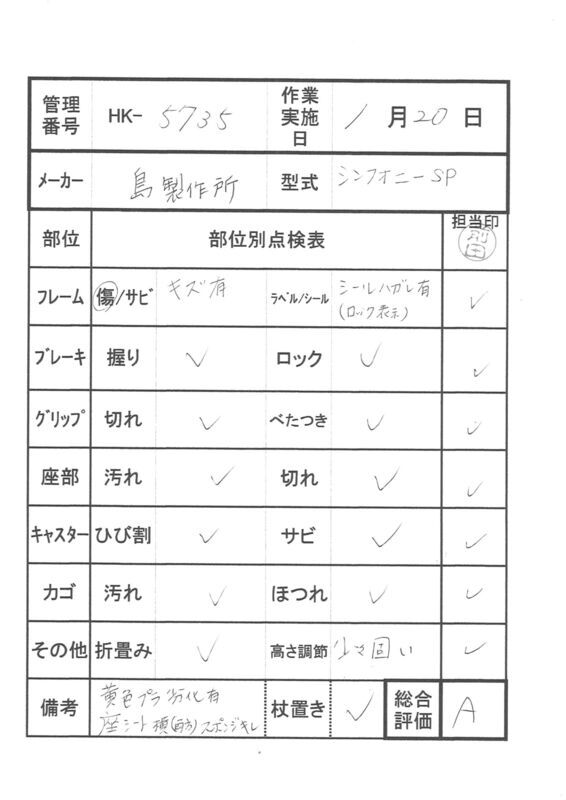 管理番号 HK- 5735 作業実施日 1月20日
メーカー 島製作所 型式 シンフォニーSP
部位 部位別点検表 担当印
前田
フレーム 傷/サビ キズ有 ラベル/シール シールハガレ有
(ロック表示) ✓
ブレーキ 握り ✓ ロック ✓ ✓
グリップ 切れ ✓ べたつき ✓ ✓
座部 汚れ ✓ 切れ ✓ ✓
キャスター ひび割 ✓ サビ ✓ ✓
カゴ 汚れ ✓ ほつれ ✓ ✓
その他 折畳み ✓ 高さ調節 少々固い ✓
備考 黄色プラ劣化有 杖置き ✓ 総合評価 A
座シート横(両方)スポンジキレ